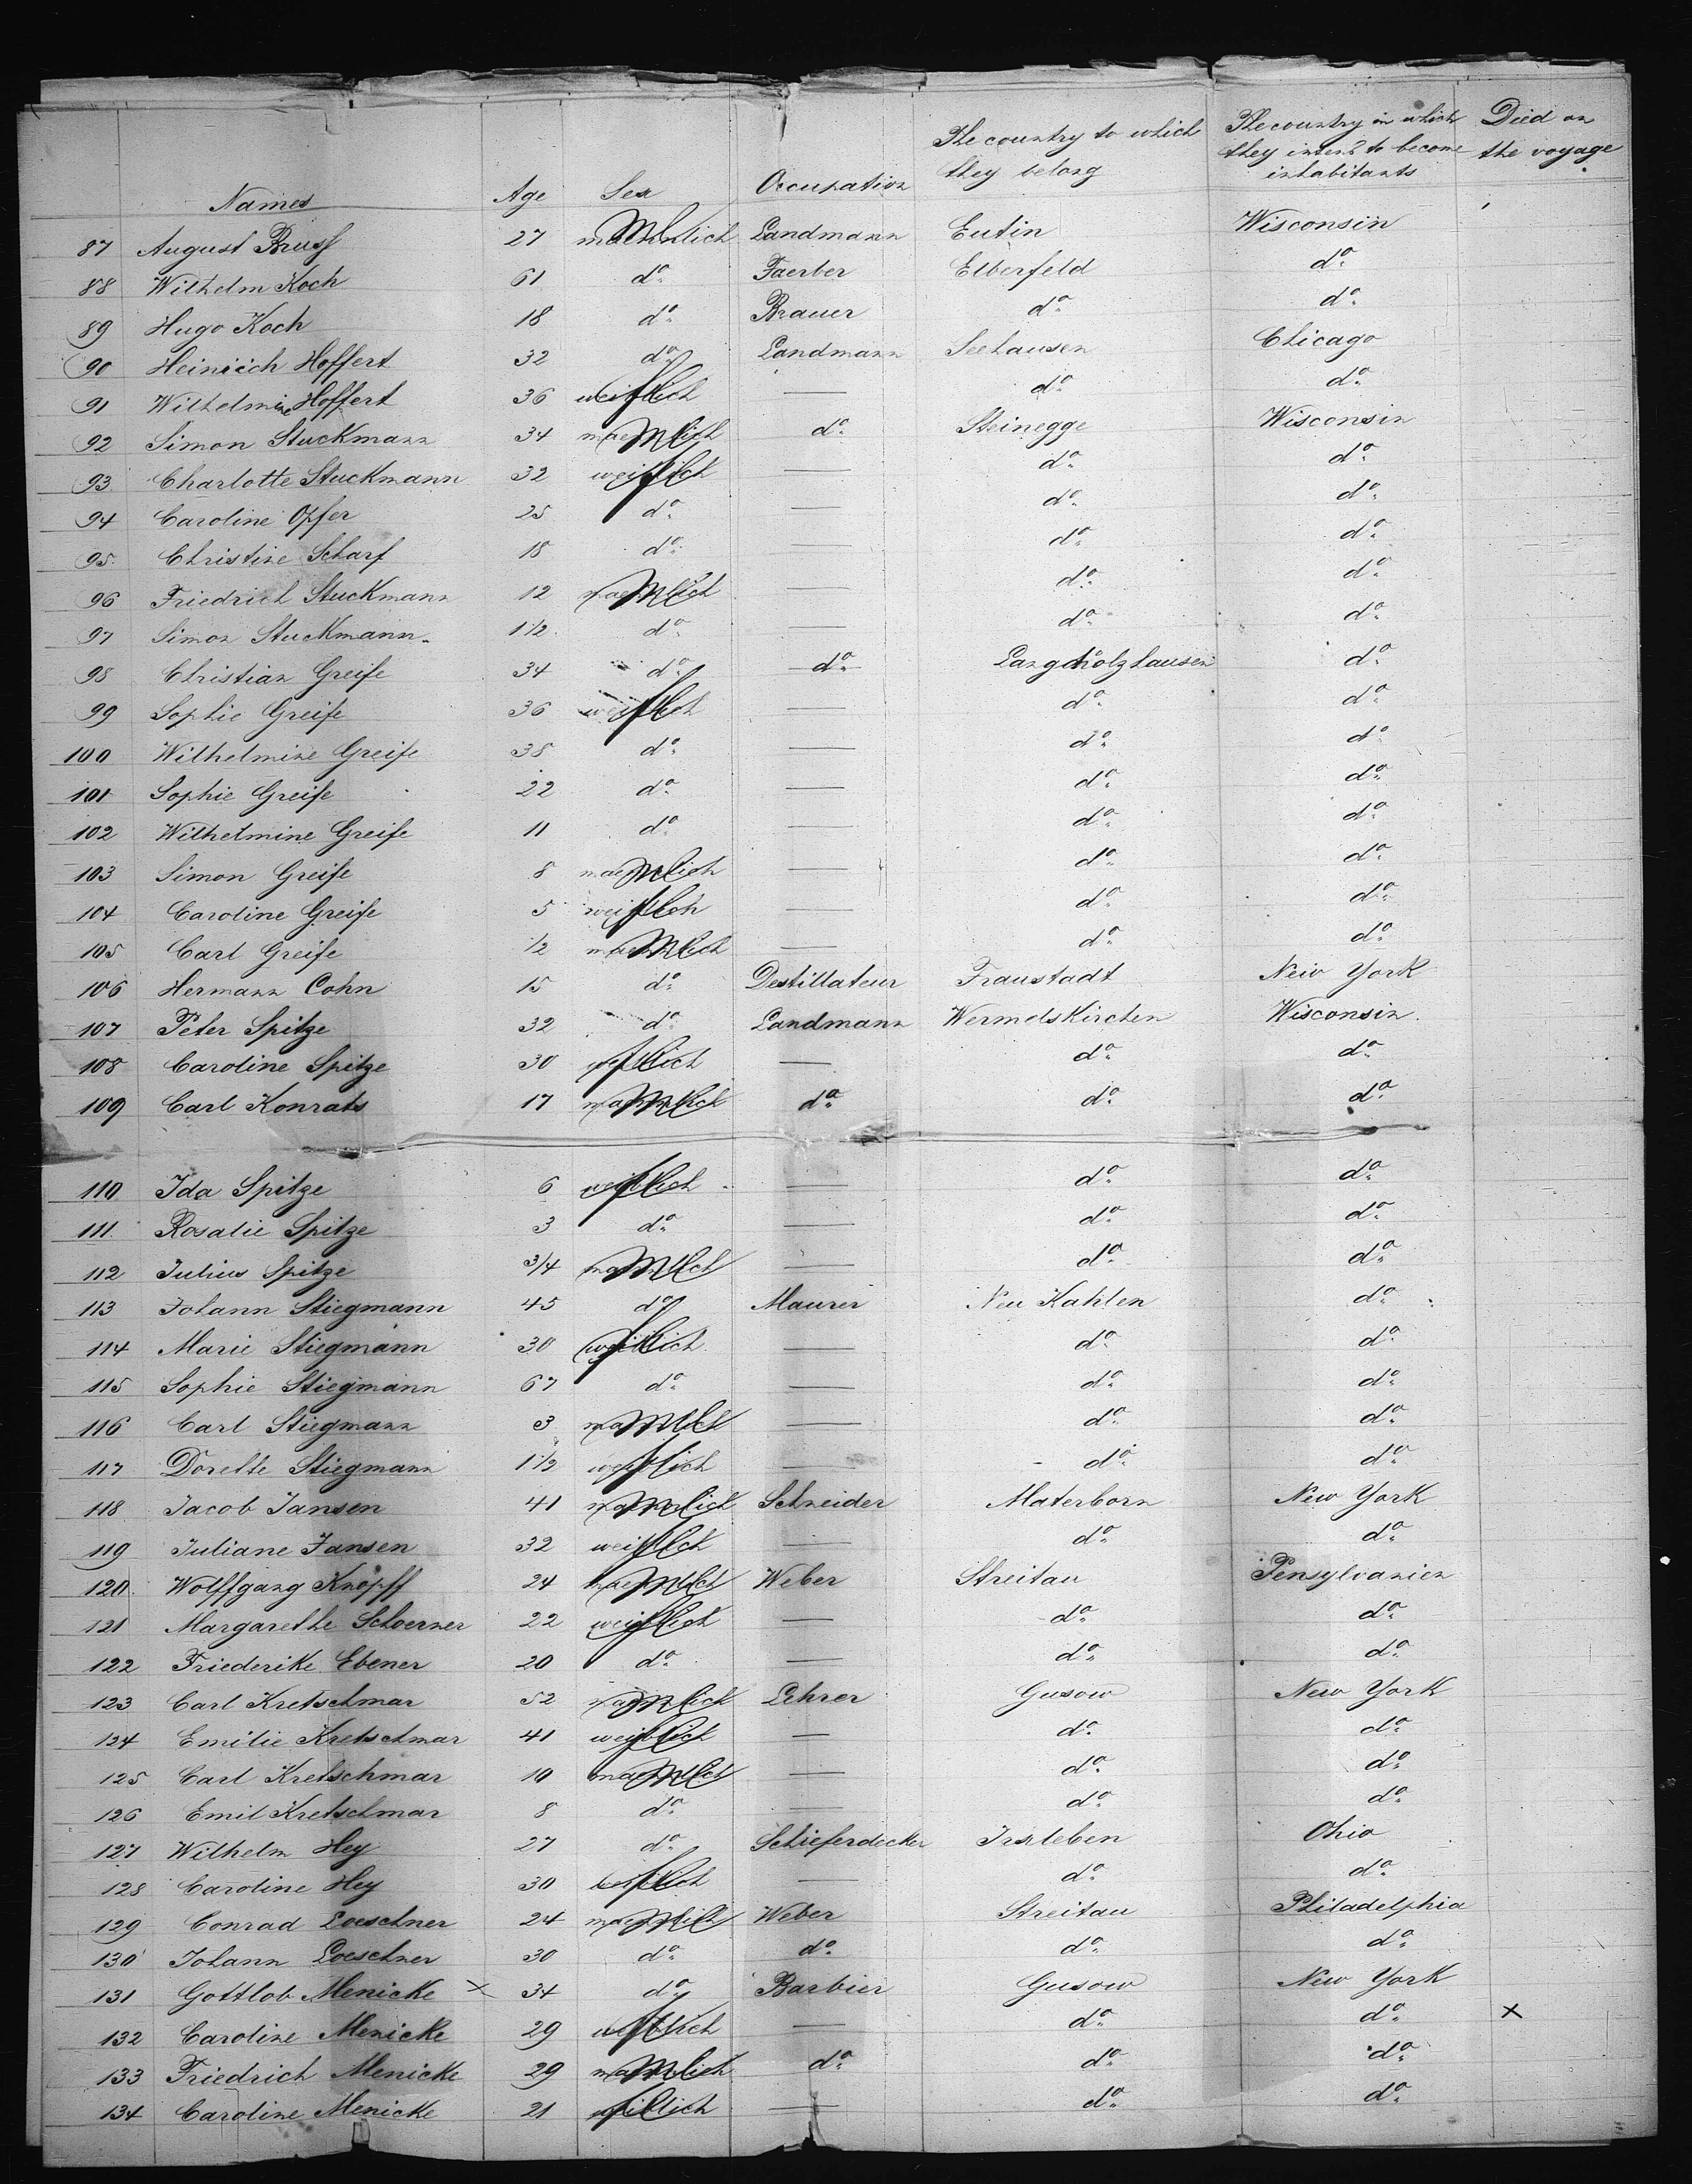 Names Age Sex Occupation The country to which they belong The country in which they intend to become inhabitants Died on the voyage
87 August Pruss 27 maennlich Landmann Eutin Wisconsin
88 Wilhelm Koch 61 do Faerber Elberfeld do
89 Hugo Koch 18 do Brauer do do
90 Heinrich Hoffert 32 do Landmann Seehausen Chicago
91 Wilhelmine Hoffert 36 weiblich — do do
92 Simon Stuckmann 34 maennlich do Steinegge Wisconsin
93 Charlotte Stuckmann 32 weiblich — do do
94 Caroline Opfer 25 do — do do
95 Christine Scharf 18 do — do do
96 Friedrich Stuckmann 12 maennlich — do do
97 Simon Stuckmann 1 1/2 do — do do
98 Christian Greife 34 do do Langenholzhausen do
99 Sophie Greife 36 weiblich — do do
100 Wilhelmine Greife 38 do — do do
101 Sophie Greife 22 do — do do
102 Wilhelmine Greife 11 do — do do
103 Simon Greife 8 maennlich — do do
104 Caroline Greife 5 weiblich — do do
105 Carl Greife 1/2 maennlich — do do
106 Hermann Cohn 15 do Destillateur Fraustadt New York
107 Peter Spitze 32 do Landmann Wermelskirchen Wisconsin
108 Caroline Spitze 30 weiblich — do do
109 Carl Konrats 17 maennlich do do do
110 Ida Spitze 6 weiblich — do do
111 Rosalie Spitze 3 do — do do
112 Julius Spitze 3/4 maennlich — do do
113 Johann Stiegmann 45 do Maurer Neu Kahlen do
114 Marie Stiegmann 30 weiblich — do do
115 Sophie Stiegmann 67 do — do do
116 Carl Stiegmann 3 maennlich — do do
117 Dorette Stiegmann 1 1/2 weiblich — do do
118 Jacob Jansen 41 maennlich Schneider Materborn New York
119 Juliane Jansen 32 weiblich — do do
120 Wolffgang Knöpff 24 maennlich Weber Streitau Pensylvanien
121 Margarethe Schoerner 22 weiblich — do do
122 Friederike Ebener 20 do — do do
123 Carl Kretschmar 52 maennlich Lehrer Gusow New York
124 Emilie Kretschmar 41 weiblich — do do
125 Carl Kretschmar 10 maennlich — do do
126 Emil Kretschmar 8 do — do do
127 Wilhelm Hey 27 do Schieferdecker Irxleben Ohio
128 Caroline Hey 30 weiblich — do do
129 Conrad Loeschner 24 maennlich Weber Streitau Philadelphia
130 Johann Loeschner 30 do do do do
131 Gottlob Menicke x 34 do Barbier Gusow New York
132 Caroline Menicke 29 weiblich — do do x
133 Friedrich Menicke 29 maennlich do do do
134 Caroline Menicke 21 weiblich — do do